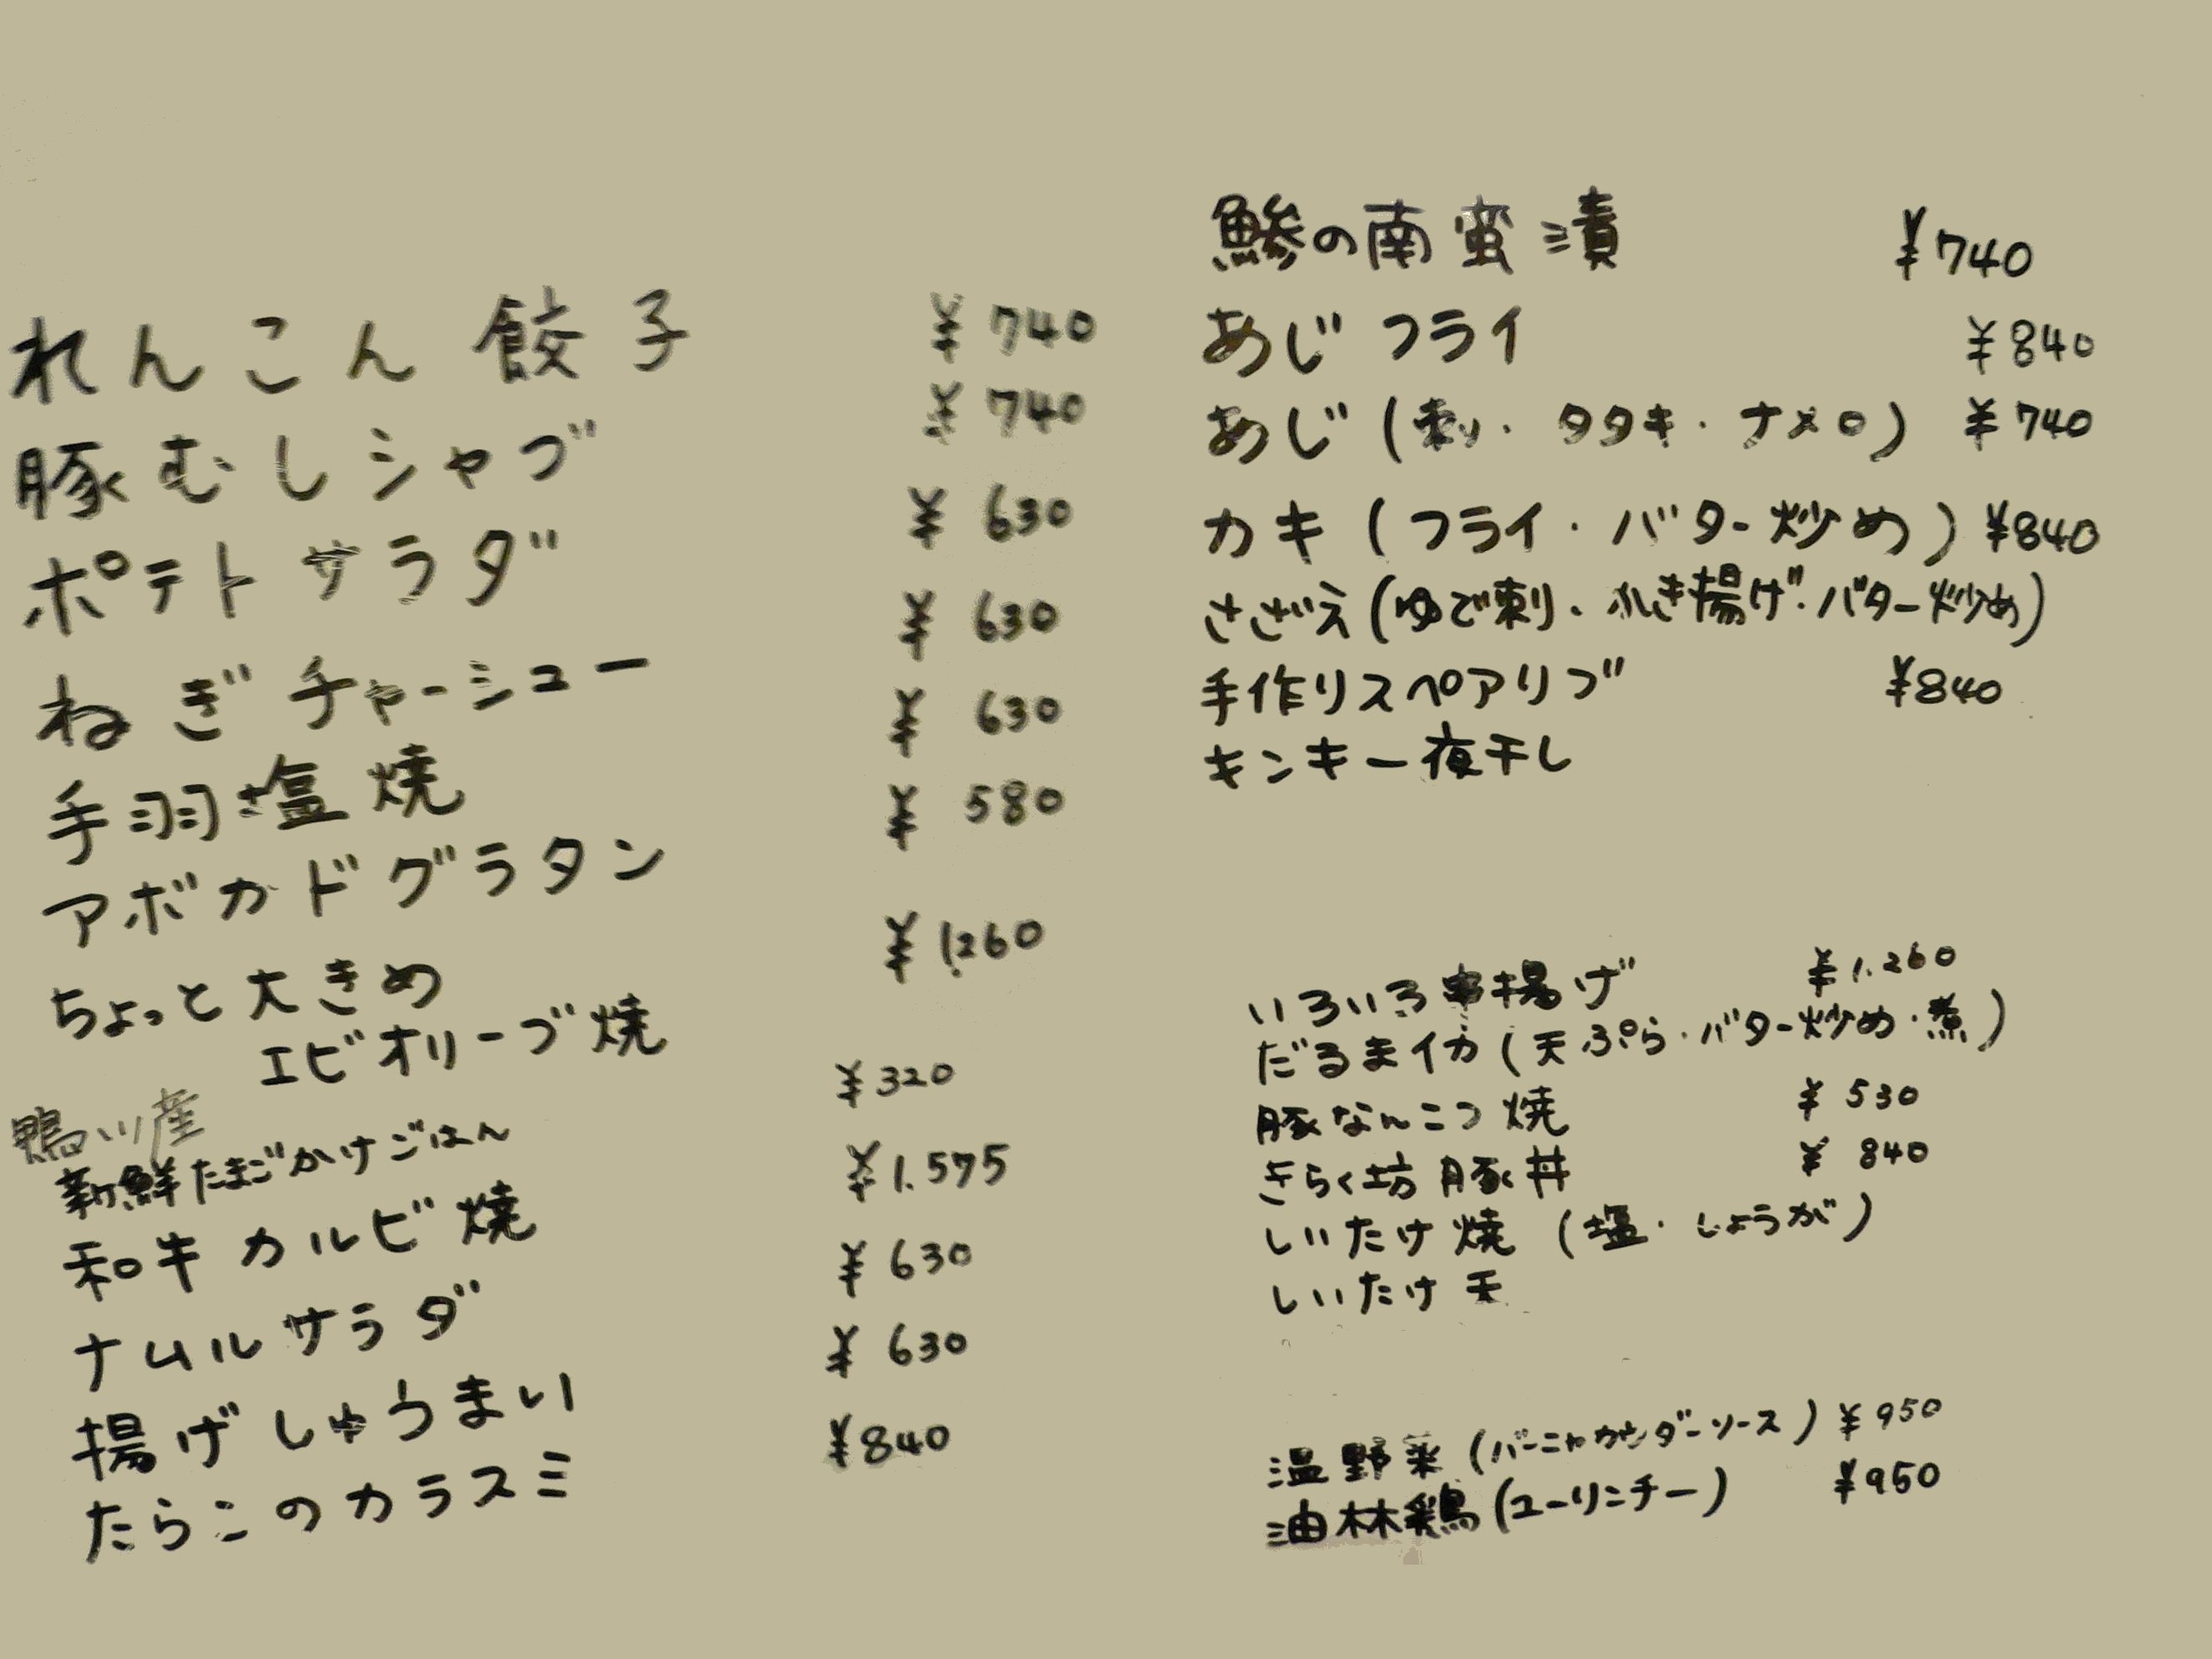 れんこん餃子 ¥740
豚むしシャブ ¥740
ポテトサラダ ¥630
ねぎチャーシュー ¥630
手羽塩焼 ¥630
アボカドグラタン ¥580
ちょっと大きめ
エビオリーブ焼 ¥1,260
鴨川産
新鮮たまごかけごはん ¥320
和牛カルビ焼 ¥1.575
ナムルサラダ ¥630
揚げしゅうまい ¥630
たらこのカラスミ ¥840
鯵の南蛮漬 ¥740
あじフライ ¥840
あじ(刺・タタキ・ナメロ) ¥740
カキ(フライ・バター炒め) ¥840
さざえ(ゆで刺・かき揚げ・バター炒め)
手作りスペアリブ ¥840
キンキ一夜干し
いろいろ串揚げ ¥1.260
だるまイカ(天ぷら・バター炒め・煮)
豚なんこつ焼 ¥530
きらく坊豚丼 ¥840
しいたけ焼(塩・しょうが)
しいたけ天
温野菜(バーニャカウダーソース) ¥950
油林鶏(ユーリンチー) ¥950